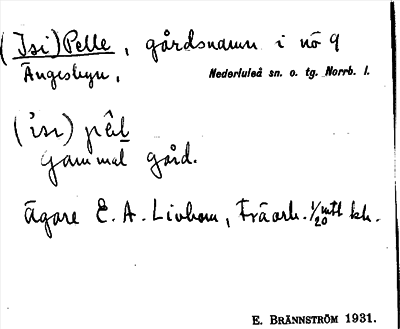 (Isi)Pelle, gårdsnamn i nö 9
Ängesbyn,
Nederluleå sn. o. tg. Norrb. l.
(isi)
Gammal gård.
Ägare E. A. Livbom, Träarb. 1/20 mtl kr.
E. BRÄNNSTRÖM 1931.